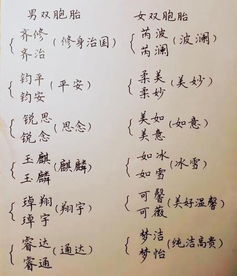 男双胞胎 女双胞胎
齐修
齐治
(修身治国)
芮波
芮澜
(波澜)
钧平
钧安
(平安)
柔美
柔妙
(美妙)
锐思
锐念
(思念)
美如
美意
(如意)
玉麒
玉麟
(麒麟)
如冰
如雪
(冰雪)
璋翔
璋宇
(翔宇)
可馨
可薇
(美好温馨)
睿达
睿通
(通达)
梦洁
梦怡
(纯洁高贵)